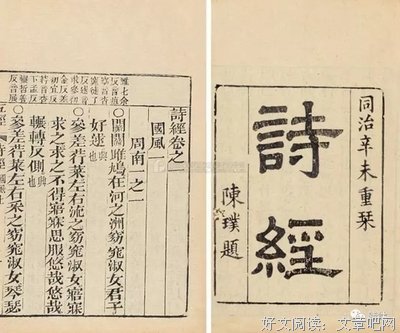 同治辛未重栞
詩經
陳璞題
詩經卷之
國風
周南一之二
○關關雎鳩在河之洲窈窕淑女君子
好逑興也
○參差荇菜左右流之窈窕淑女寤寐
求之求之不得寤寐思服悠哉悠哉
輾轉反側興也
○參差荇菜左右采之窈窕淑女琴瑟
好文阅读：文章吧网